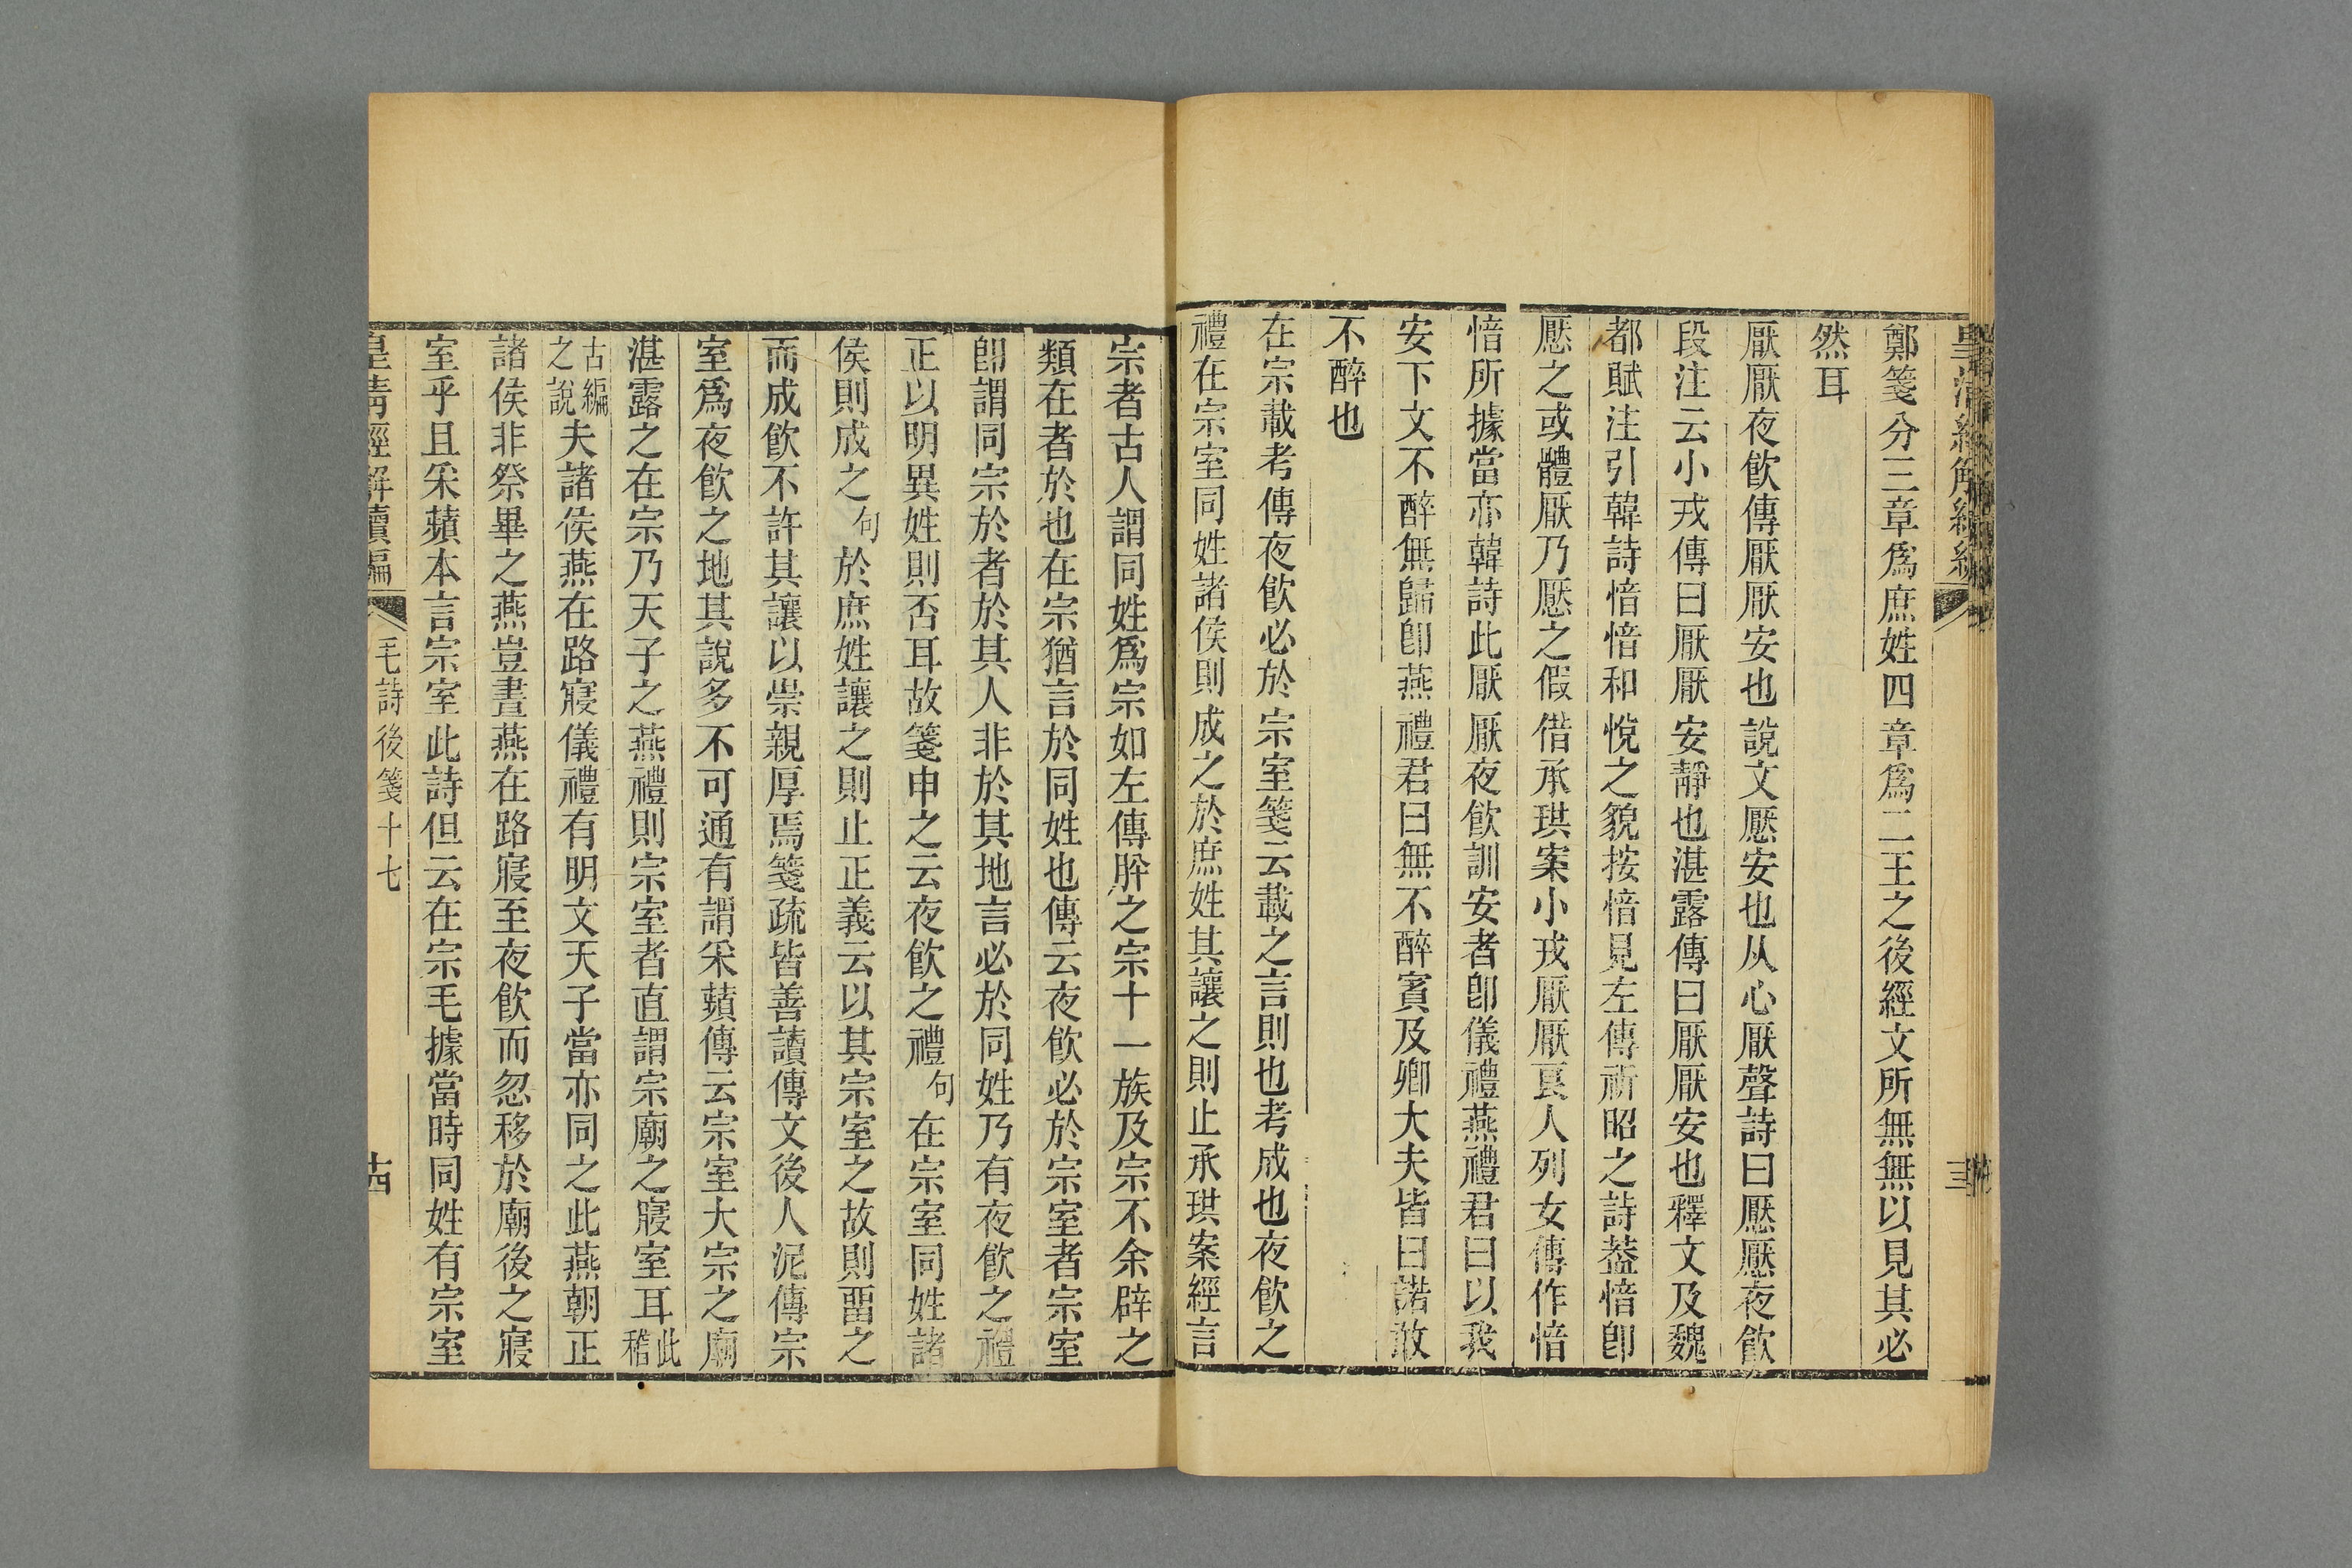 鄭箋分三章爲庶姓四章爲二王之後經文所無無以見其必
然耳
厭厭夜飮傳厭厭安也說文懕安也从心厭聲詩曰懕懕夜飮
段注云小戎傳曰厭厭安靜也湛露傳曰厭厭安也釋文及魏
都賦注引韓詩愔愔和悅之貌按愔見左傳祈昭之詩葢愔卽
懕之或體厭乃懕之假借承珙案小戎厭厭良人列女傳作愔
愔所據當亦韓詩此厭厭夜飮訓安者卽儀禮燕禮君曰以我
安下文不醉無歸卽燕禮君曰無不醉賓及卿大夫皆曰諾敢
不醉也
在宗載考傳夜飮必於宗室箋云載之言則也考成也夜飮之
禮在宗室同姓諸侯則成之於庶姓其讓之則止承珙案經言
宗者古人謂同姓爲宗如左傳肸之宗十一族及宗不余辟之
類在者於也在宗猶言於同姓也傳云夜飮必於宗室者宗室
卽謂同宗於者於其人非於其地言必於同姓乃有夜飮之禮
正以明異姓則否耳故箋申之云夜飮之禮句在宗室同姓諸
侯則成之句於庶姓讓之則止正義云以其宗室之故則畱之
而成飮不許其讓以崇親厚焉箋疏皆善讀傳文後人泥傳宗
室爲夜飮之地其說多不可通有謂采蘋傳云宗室大宗之廟
湛露之在宗乃天子之燕禮則宗室者直謂宗廟之寢室耳此稽
古編之說夫諸侯燕在路寢儀禮有明文天子當亦同之此燕朝正
諸侯非祭畢之燕豈晝燕在路寢至夜飮而忽移於廟後之寢
室乎且采蘋本言宗室此詩但云在宗毛據當時同姓有宗室
皇淸經解續編 毛詩後箋十七 十四